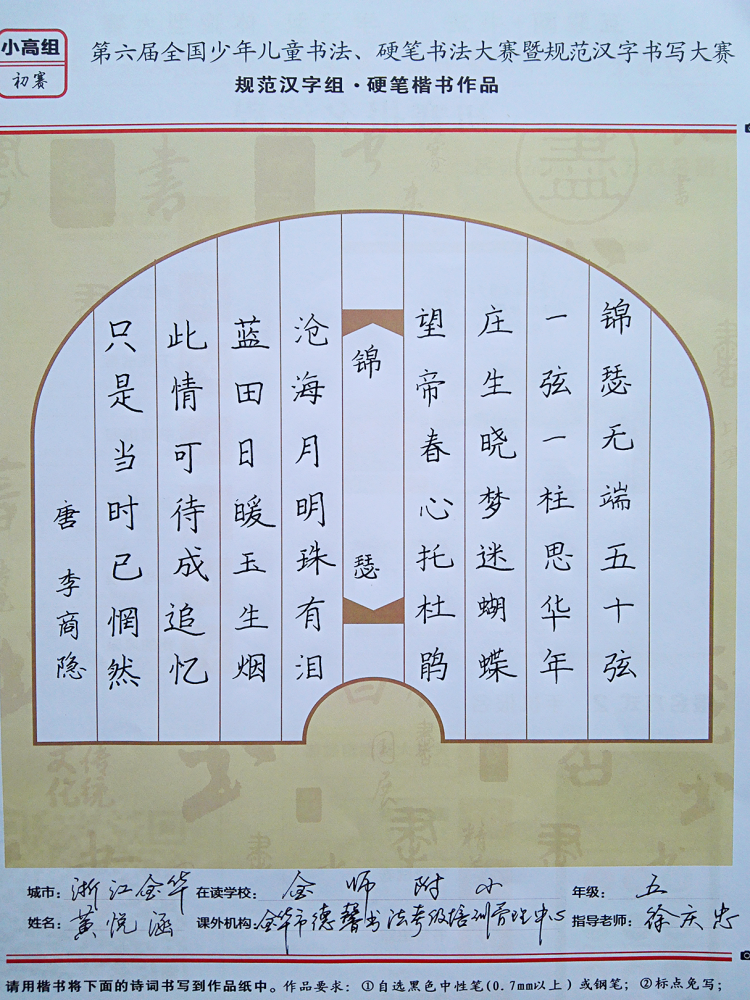 小高组
初赛
第六届全国少年儿童书法、硬笔书法大赛暨规范汉字书写大赛
规范汉字组·硬笔楷书作品
锦瑟无端五十弦
一弦一柱思华年
庄生晓梦迷蝴蝶
望帝春心托杜鹃
锦瑟
沧海月明珠有泪
蓝田日暖玉生烟
此情可待成追忆
只是当时已惘然
唐 李商隐
城市：浙江金华 在读学校：金师附小 年级：五
姓名：黄悦涵 课外机构：金华市德馨书法考级培训管理中心 指导老师：徐庆忠
请用楷书将下面的诗词书写到作品纸中。作品要求：①自选黑色中性笔(0.7mm以上)或钢笔；②标点免写；